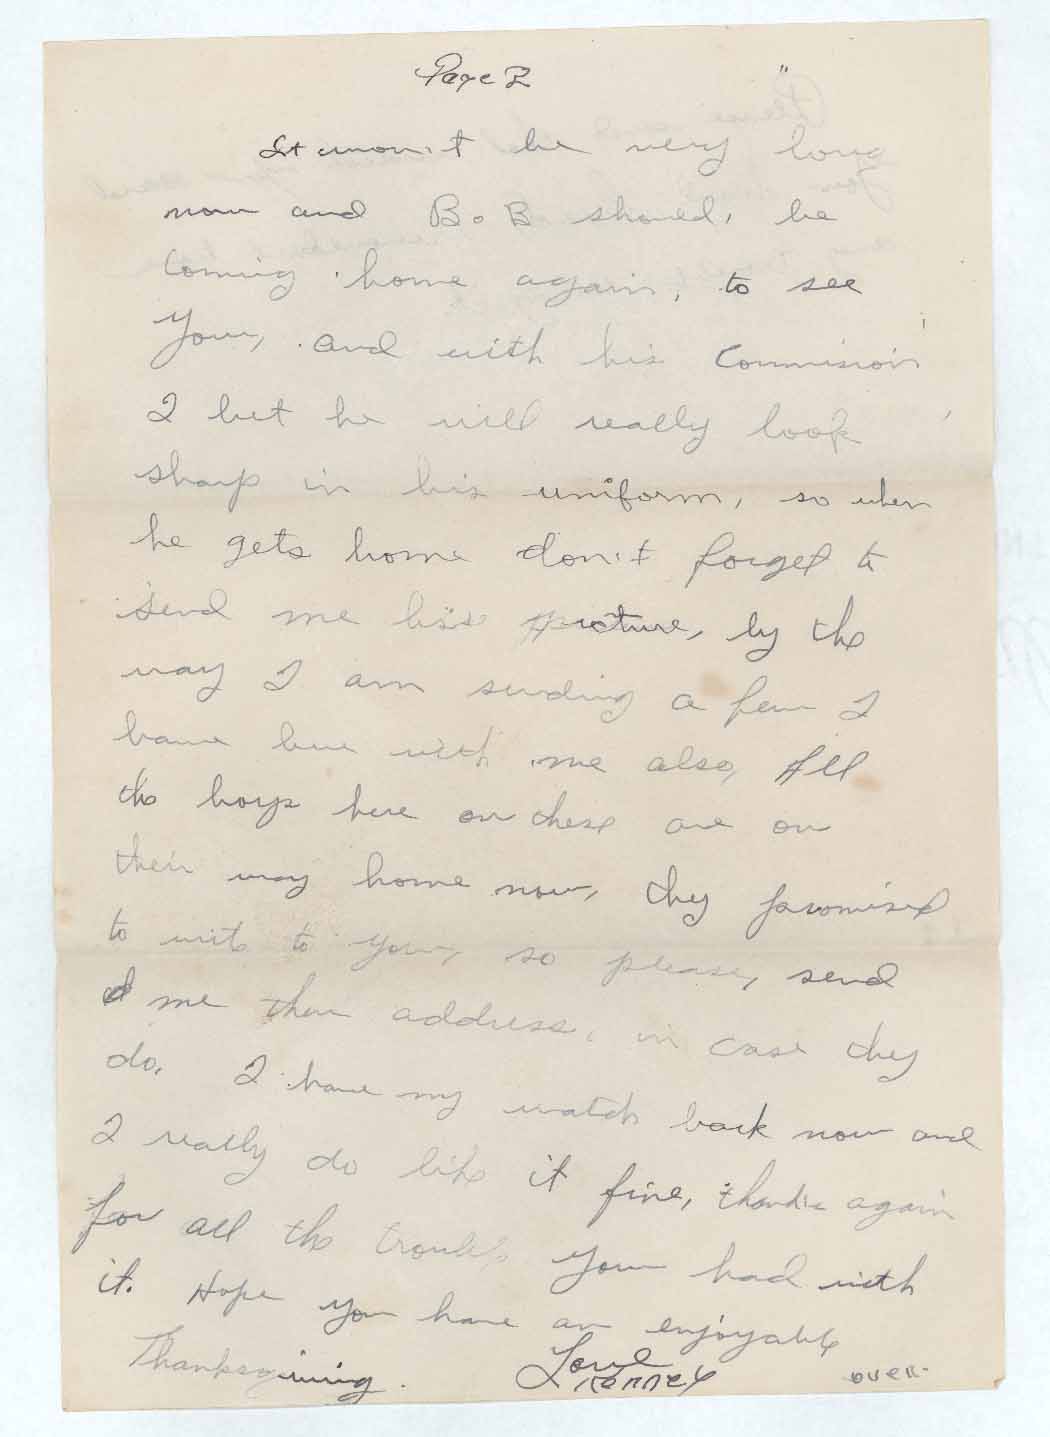 Page 2
It won't be very long
now and BoB should, be
coming home again, to see
You, and with his Commision
I bet he will really look
sharp in his uniform, so when
he gets home don't forget to
send me his picture, by the
way I am sending a few I
have here with me also, All
the boys here on these are on
their way home now, they promised
to write to you, so please, send
me their address, in case they
do. I have my watch back now and
I really do like it fine, thanks again
for all the trouble you had with
it. Hope you have an enjoyable
Thanksgiving.
Love
over.